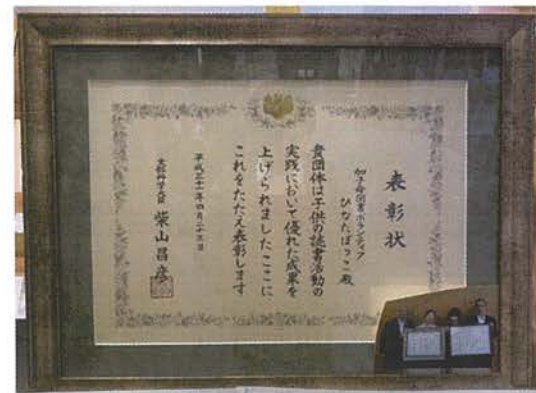 表彰状
加子母図書ボランティア
ひなたぼっこ殿
貴団体は子供の読書活動の
実践において優れた成果を
上げられましたここに
これをたたえ表彰します
平成三十一年四月二十三日
文部科学大臣 柴山昌彦